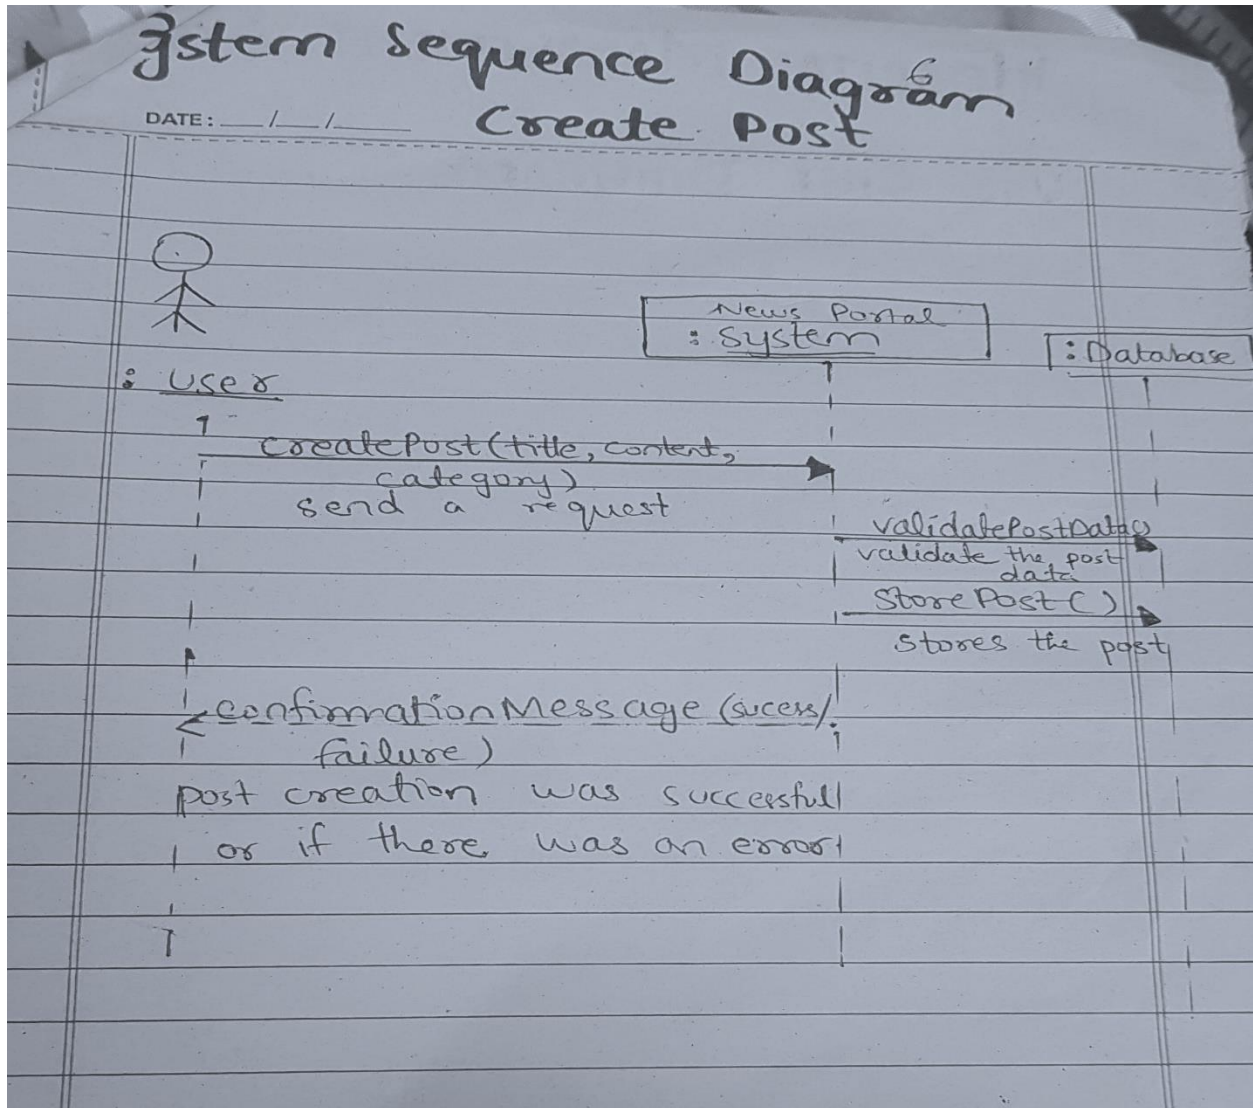 System Sequence Diagram
6
DATE: __/__/____
Create Post
News Portal
: System
: Database
: User
createPost(title, content,
category)
send a request
validatePostData()
validate the post
data
StorePost()
stores the post
confirmationMessage (sucess/
failure)
post creation was successfull
or if there was an error